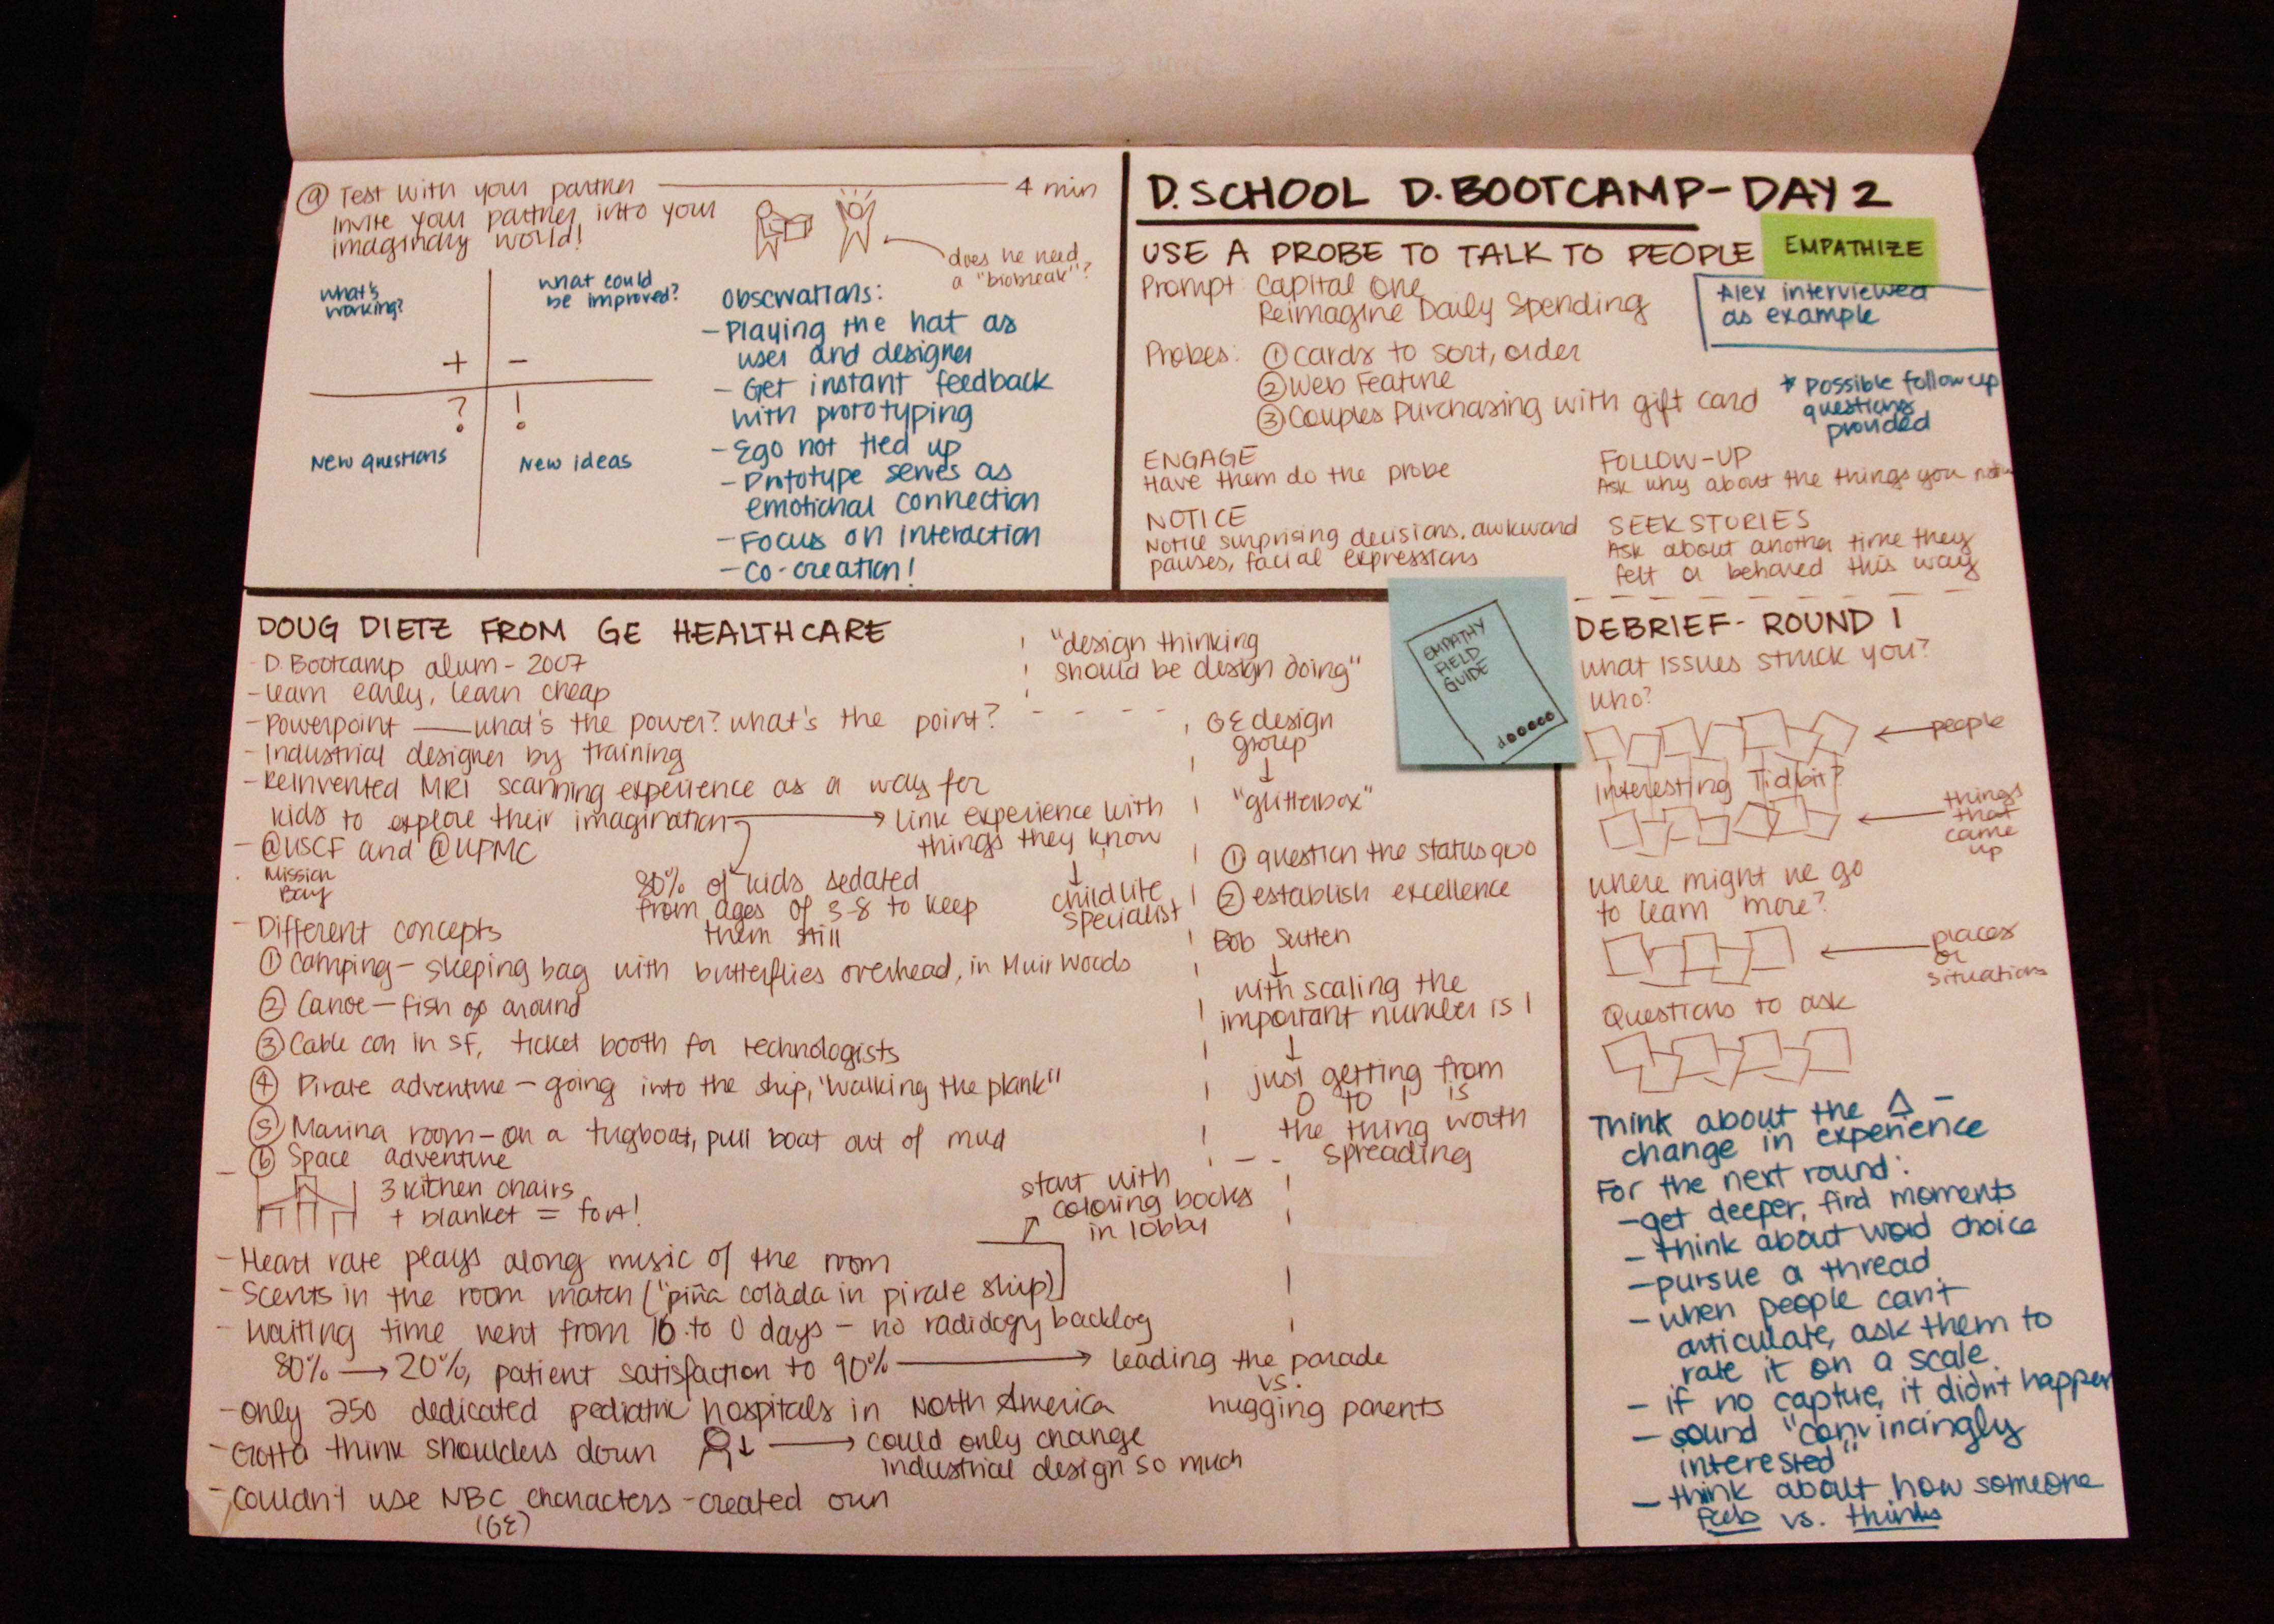 ⑨ Test with your partner — 4 min
Invite your partner into your
imaginary world!
does he need
a "biobreak"?
what's
working?
what could
be improved?
+
−
?
!
New questions
New ideas
Observations:
- Playing the hat as
user and designer
- Get instant feedback
with prototyping
- Ego not tied up
- Prototype serves as
emotional connection
- Focus on interaction
- Co-creation!
D.SCHOOL D.BOOTCAMP-DAY 2
USE A PROBE TO TALK TO PEOPLE
EMPATHIZE
Prompt: Capital One
Reimagine Daily Spending
Alex interviewed
as example
Probes: ① cards to sort, order
② Web Feature
③ Couples purchasing with gift card
* possible followup
questions
provided
ENGAGE
Have them do the probe
FOLLOW-UP
Ask why about the things you
NOTICE
Notice surprising decisions, awkward
pauses, facial expressions
SEEK STORIES
Ask about another time they
felt or behaved this way
DOUG DIETZ FROM GE HEALTHCARE
- D.Bootcamp alum - 2007
- learn early, learn cheap
- Powerpoint — what's the power? what's the point?
- Industrial designer by training
- Reinvented MRI scanning experience as a way for
kids to explore their imagination → link experience with
things they know
↓
childlife
specialist
80% of kids sedated
from ages of 3-8 to keep
them still
- @USCF and @UPMC
Mission
Bay
- Different concepts
① Camping - sleeping bag with butterflies overhead, in Muir Woods
② Canoe - fish go around
③ Cable car in SF, ticket booth for technologists
④ Pirate adventure - going into the ship, "walking the plank"
⑤ Marina room - on a tugboat, pull boat out of mud
⑥ Space adventure
- 3 kitchen chairs
+ blanket = fort!
- Heart rate plays along music of the room
- Scents in the room match ("piña colada in pirate ship)
start with
coloring books
in lobby
- Waiting time went from 16 to 0 days - no radiology backlog
80% → 20%, patient satisfaction to 90% → leading the parade
vs.
hugging parents
- only 250 dedicated pediatric hospitals in North America
- Gotta think shoulders down ↓ → could only change
industrial design so much
- Couldn't use NBC characters - created own
(GE)
"design thinking
should be design doing"
GE design
group
↓
"glitterbox"
① question the status quo
② establish excellence
Bob Sutten
↓
with scaling the
important number is 1
↓
just getting from
0 to 1 is
the thing worth
spreading
EMPATHY
FIELD
GUIDE
DEBRIEF - ROUND 1
what issues struck you?
who?
← people
Interesting Tidbit?
← things
that
came
up
where might we go
to learn more?
← places
or
situations
Questions to ask
Think about the Δ -
change in experience
For the next round:
- get deeper, find moments
- think about word choice
- pursue a thread
- when people can't
articulate, ask them to
rate it on a scale
- if no capture, it didn't happen
- sound "convincingly
interested"
- think about how someone
feels vs. thinks